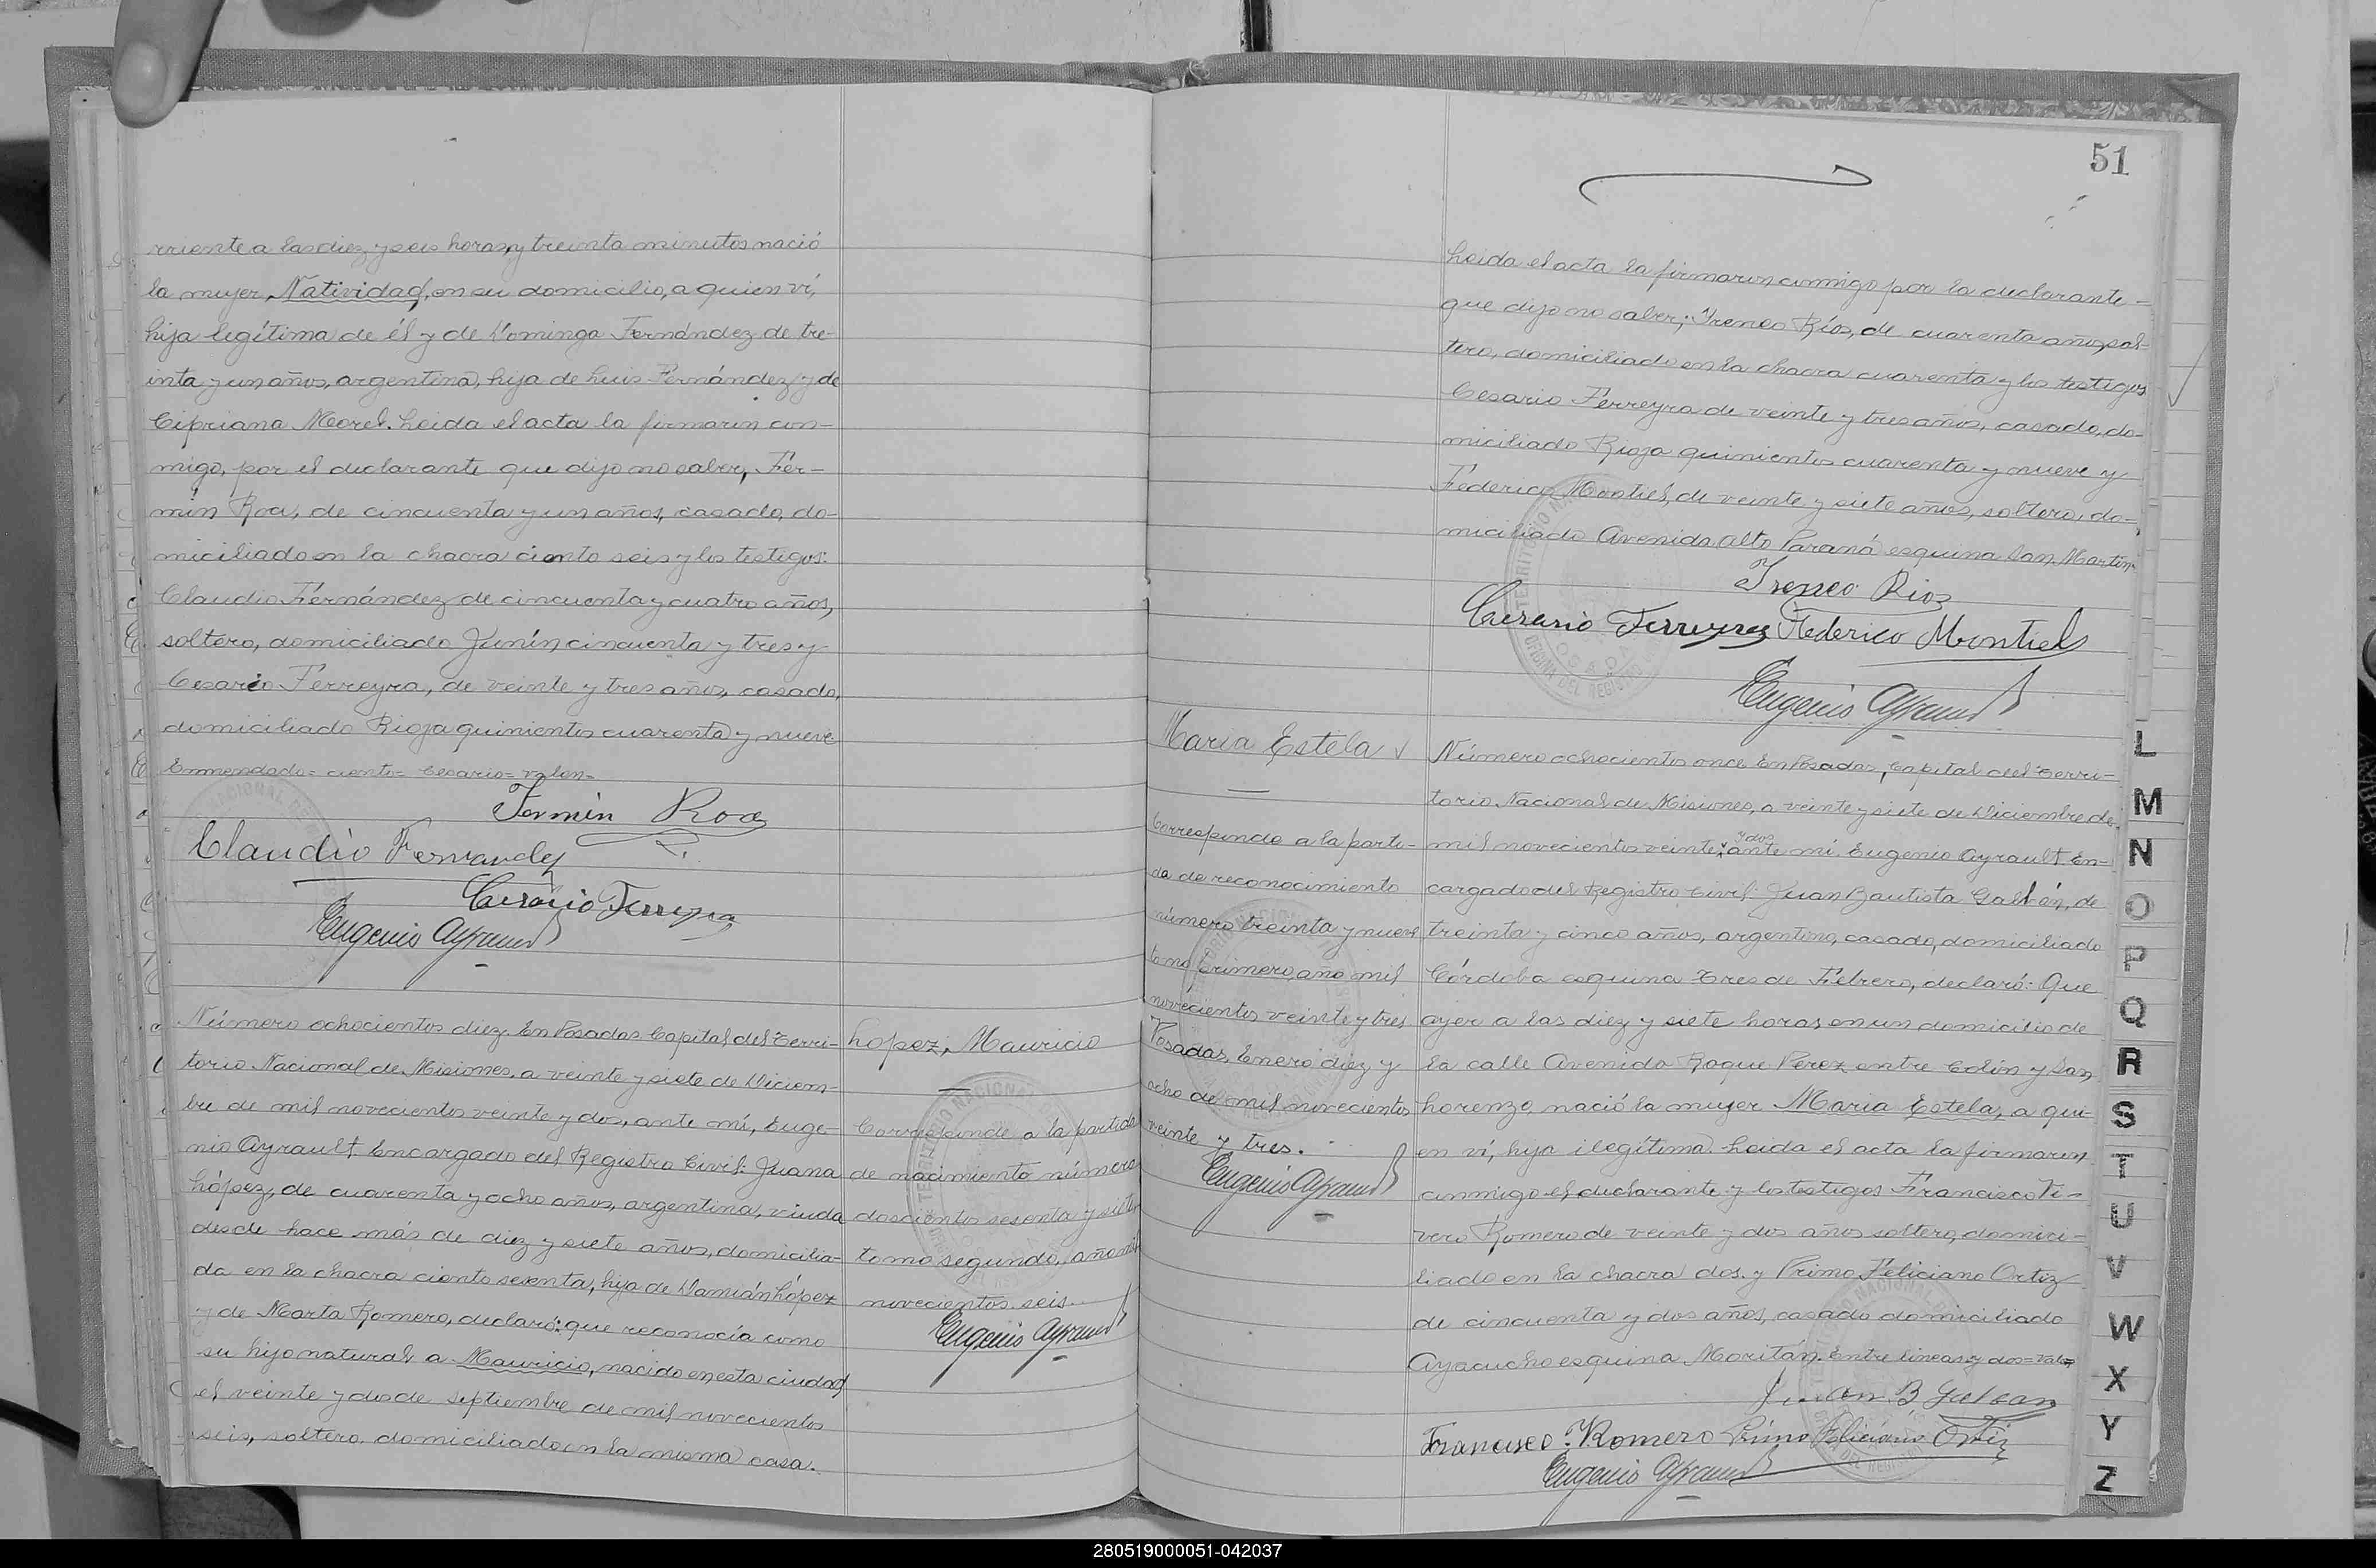 rriente a las diez y seis horas, y treinta minutos nació
la mujer, Natividad, en su domicilio, a quien ví,
hija legítima de él y de Dominga Fernández de tre-
inta y un años, argentina, hija de Luis Fernández y de
Cipriana Morel. Leida el acta la firmaron con-
migo, por el declarante que dijo no saber, Fer-
mín Roa, de cincuenta y un años, casado, do-
miciliado en la chacra ciento seis y los testigos:
Claudio Fernández de cincuenta y cuatro años,
soltero, domiciliado Junín cincuenta y tres y
Cesario Ferreyra, de veinte y tres años, casado,
domiciliado Rioja quinientos cuarenta y nueve
Enmendado= ciento= Cesario= valen=
Fermin Roa
Claudio Fernandez
Cesario Ferreyra
Eugenio Ayrault
Número ochocientos diez. En Posadas Capital del Terri-
torio Nacional de Misiones, a veinte y siete de Diciem-
bre de mil novecientos veinte y dos, ante mí, Euge-
nio Ayrault Encargado del Registro Civil: Juana
López, de cuarenta y ocho años, argentina, viuda
desde hace más de diez y siete años, domicilia-
da en la chacra ciento sesenta, hija de Damián López
y de Marta Romero, declaró: que reconocía como
su hijo natural a Mauricio, nacido en esta ciudad
el veinte y dos de septiembre de mil novecientos
seis, soltero, domiciliado en la misma casa.
Lopez, Mauricio
Corresponde a la partida
de nacimiento número
doscientos sesenta y siete
tomo segundo, año mil
novecientos seis.
Eugenio Ayrault
51
Leida el acta la firmaron conmigo por la declarante
que dijo no saber; Ireneo Ríos, de cuarenta años, sol-
tero, domiciliado en la chacra cuarenta y los testigos
Cesario Ferreyra de veinte y tres años, casado, do-
miciliado Rioja quinientos cuarenta y nueve y
Federico Montiel, de veinte y siete años, soltero, do-
miciliado Avenida Alto Paraná esquina San Martín.
Ireneo Rios
Cesario Ferreyra Federico Montiel
Eugenio Ayrault
Maria Estela
Corresponde a la parti-
da de reconocimiento
número treinta y nueve
tomo primero, año mil
novecientos veinte y tres
Posadas, Enero diez y
ocho de mil novecientos
veinte y tres.
Eugenio Ayrault
Número ochocientos once En Posadas, Capital del Terri-
torio Nacional de Misiones, a veinte y siete de Diciembre de
y dos
mil novecientos veinte, ante mí, Eugenio Ayrault En-
cargado del Registro Civil: Juan Bautista Galván, de
treinta y cinco años, argentino, casado, domiciliado
Córdoba esquina Tres de Febrero, declaró: Que
ayer a las diez y siete horas en un domicilio de
la calle Avenida Roque Perez entre Colón y San
Lorenzo, nació la mujer Maria Estela, a qui-
en ví, hija ilegítima. Leida el acta la firmaron
conmigo el declarante y los testigos Francisco Ti-
vero Romero de veinte y dos años soltero, domici-
liado en la chacra dos. y Primo Feliciano Ortiz
de cincuenta y dos años, casado domiciliado
Ayacucho esquina Moritán. Entre lineas y dos=vale=
Juan B Galvan
Francisco T. Romero Primo Feliciano Ortiz
Eugenio Ayrault
L
M
N
O
P
Q
R
S
T
U
V
W
X
Y
Z
280519000051-042037